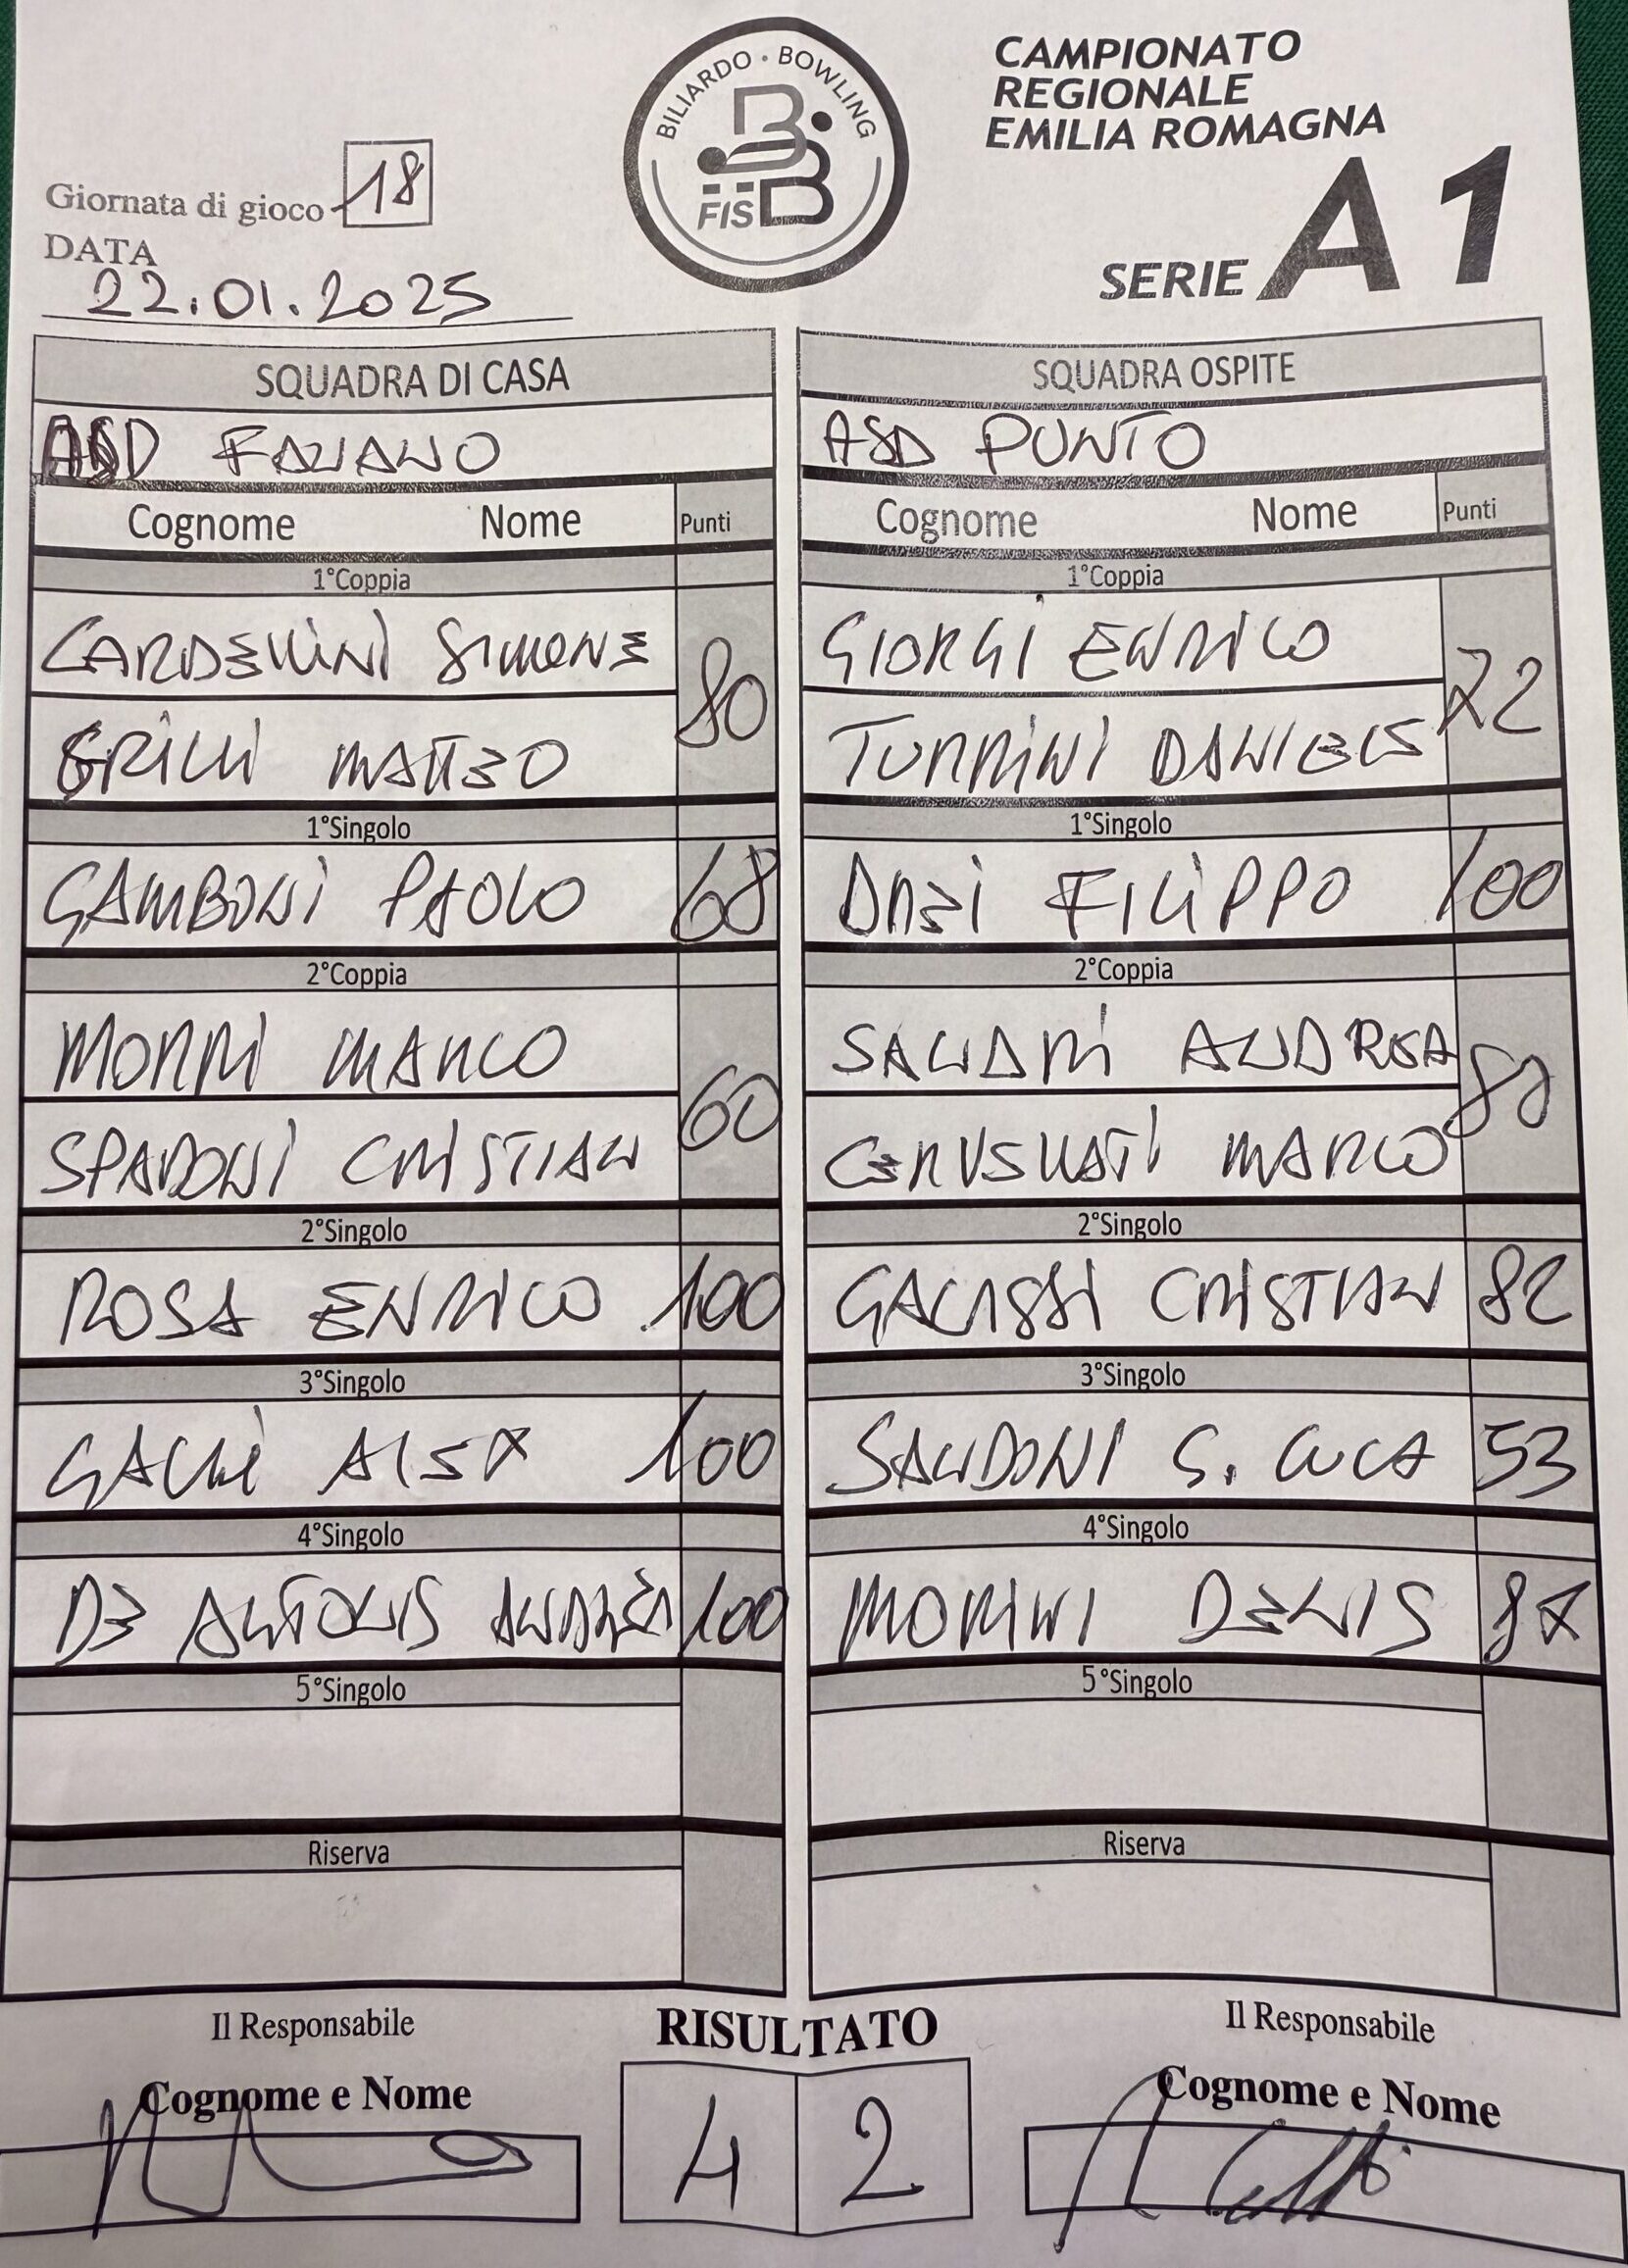 BILIARDO · BOWLING
FISBB
CAMPIONATO
REGIONALE
EMILIA ROMAGNA
SERIE A1
Giornata di gioco 18
DATA
22.01.2025
SQUADRA DI CASA SQUADRA OSPITE
ASD ASD PUNTO
Cognome Nome Punti Cognome Nome Punti
1°Coppia 1°Coppia
CARDELLINI SIMONE 80 GIORGI ENRICO 72
GRILLI MATTEO TURRINI DANIELE
1°Singolo 1°Singolo
GAMBONI PAOLO 68 FILIPPO 100
2°Coppia 2°Coppia
MORRI MARCO 60 ANDREA 80
SPADONI CRISTIAN CERVELLATI MARCO
2°Singolo 2°Singolo
ROSA ENRICO 100 GALASSI CRISTIAN 82
3°Singolo 3°Singolo
GALLI ALEX 100 SALDONI S. LUCA 53
4°Singolo 4°Singolo
DE ANTONIS ANDREA 100 MORINI DENIS 87
5°Singolo 5°Singolo
Riserva Riserva
Il Responsabile RISULTATO Il Responsabile
Cognome e Nome 4 2 Cognome e Nome